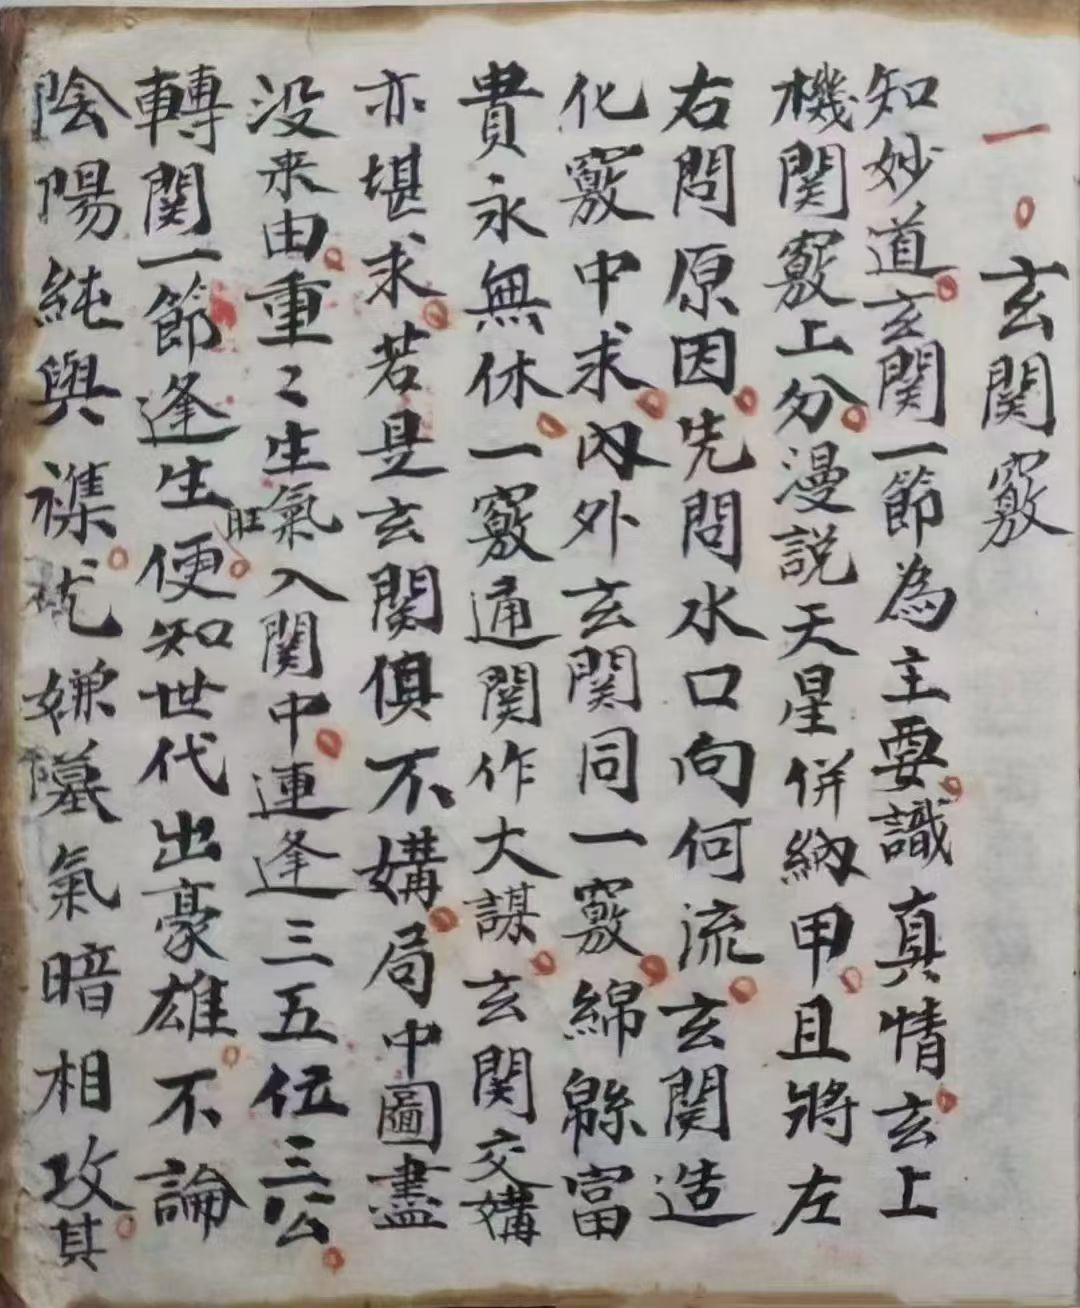 一。玄關竅
知妙道。玄關一節為主要。識真情。玄上
機關竅上分。漫說天星併納甲。且將左
右問原因。先問水口向何流。玄関造
化竅中求。內外玄関同一竅。綿綿富
貴永無休。一竅通関作大謀。玄関交媾
亦堪求。若是玄関俱不媾。局中圖盡
没来由。重々生氣入関中。連逢三五位三公。
旺
轉関一節逢生便。知世代出豪雄。不論
陰陽純與襍。尤嫌墓氣暗相攻。其